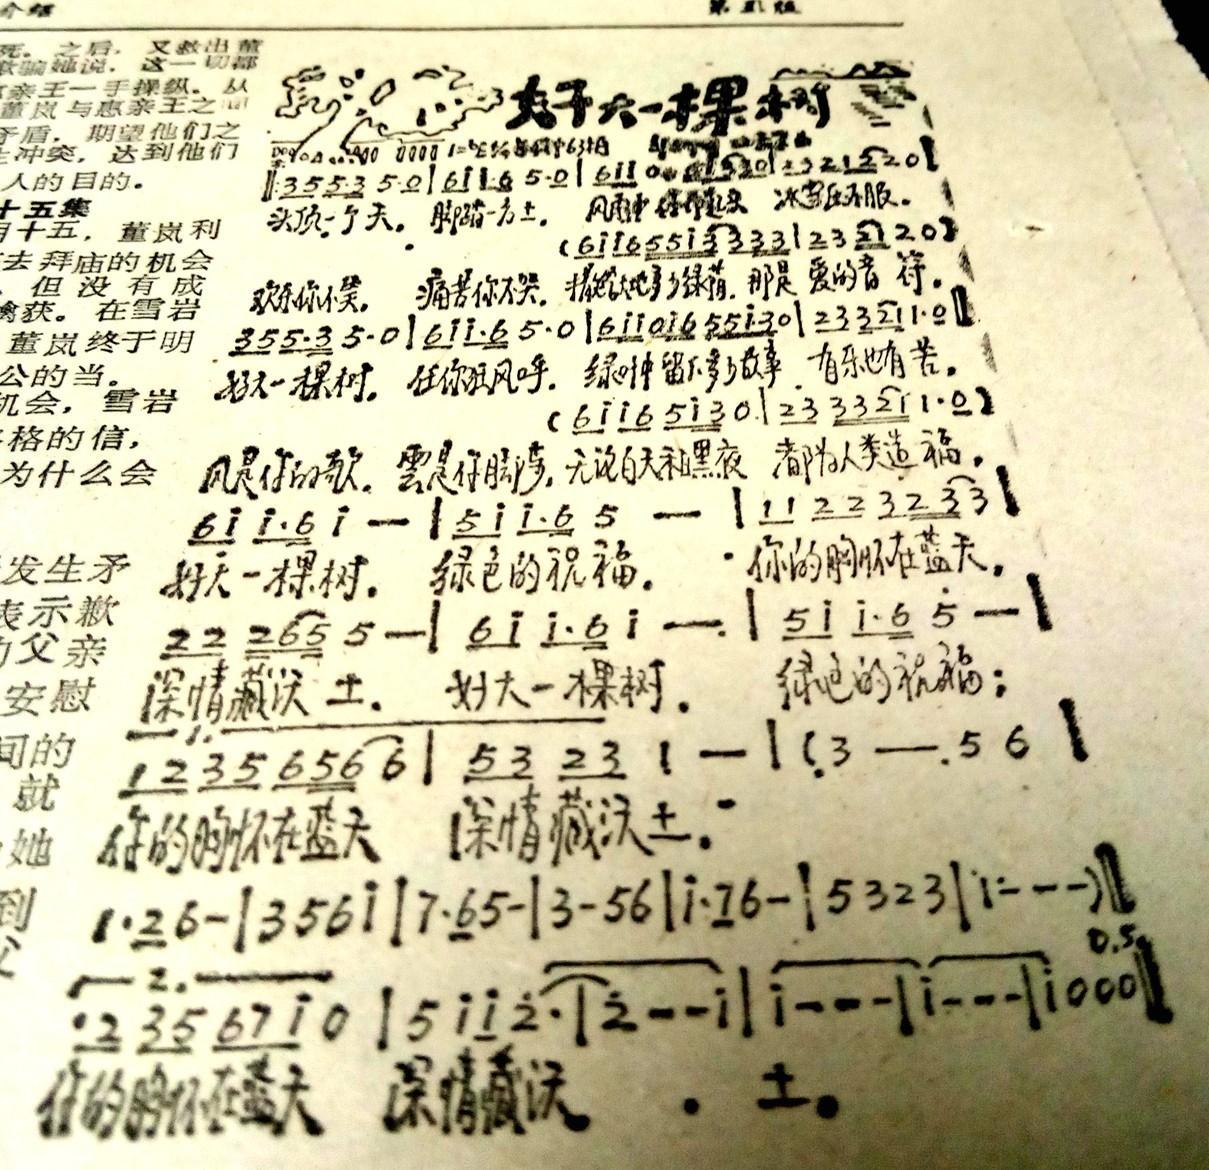 介绍 第五版
死。之后，又救出董
欺骗她说，这一切都
亲王一手操纵。从
董岚与惠亲王之间
矛盾，期望他们之
生冲突，达到他们
人的目的。
十五集
月十五，董岚利
去拜庙的机会
，但没有成
擒获。在雪岩
董岚终于明
公的当。
机会，雪岩
格的信，
为什么会
发生矛
表示歉
的父亲
安慰
间的
就
她
到
父
好大一棵树
3 5 5·3 5·0 | 6 i i·6 5·0 | 6 i i 0 | 2 3 2 1 2 2 0
头顶一个天。 脚踏一方土。 风雨中 你昂起头 冰雪压不服。
(6 i i 6 5 5 i 3 3 3 3 | 2 3 2 1 2 2 0)
欢乐你不笑。 痛苦你不哭。 撒给大地多少绿荫。那是 爱的音符。
3 5 5·3 5·0 | 6 i i·6 5·0 | 6 i i 0 i 6 5 5 i 3 0 | 2 3 3 2 1 1·0
好大一棵树。 任你狂风呼。 绿叶中留下多少故事 有乐也有苦。
(6 i i 6 5 i 3 0 | 2 3 3 3 2 1 1·0)
风是你的歌。 雲是你脚步。无论白天和黑夜 都为人类造福。
6 i i·6 i — | 5 i i·6 5 — | 1 1 2 2 3 2 3 3
好大一棵树。 绿色的祝福。 你的胸怀在蓝天。
2 2 2 6 5 5 — | 6 i i·6 i — | 5 i i·6 5 —
深情藏沃土。 好大一棵树。 绿色的祝福；
1.
1 2 3 5 6 5 6 6 | 5 3 2 3 1 — | (3 — 5 6
你的胸怀在蓝天 深情藏沃土。
1·2 6 - | 3 5 6 i | 7·6 5 - | 3 - 5 6 | i·7 6 - | 5 3 2 3 | i - - -)
0.5.
2.
·2 3 5 6 7 i 0 | 5 i i 2· | 2 - - i | i - - - | i - - - | i 0 0 0
你的胸怀在蓝天 深情藏沃 土。